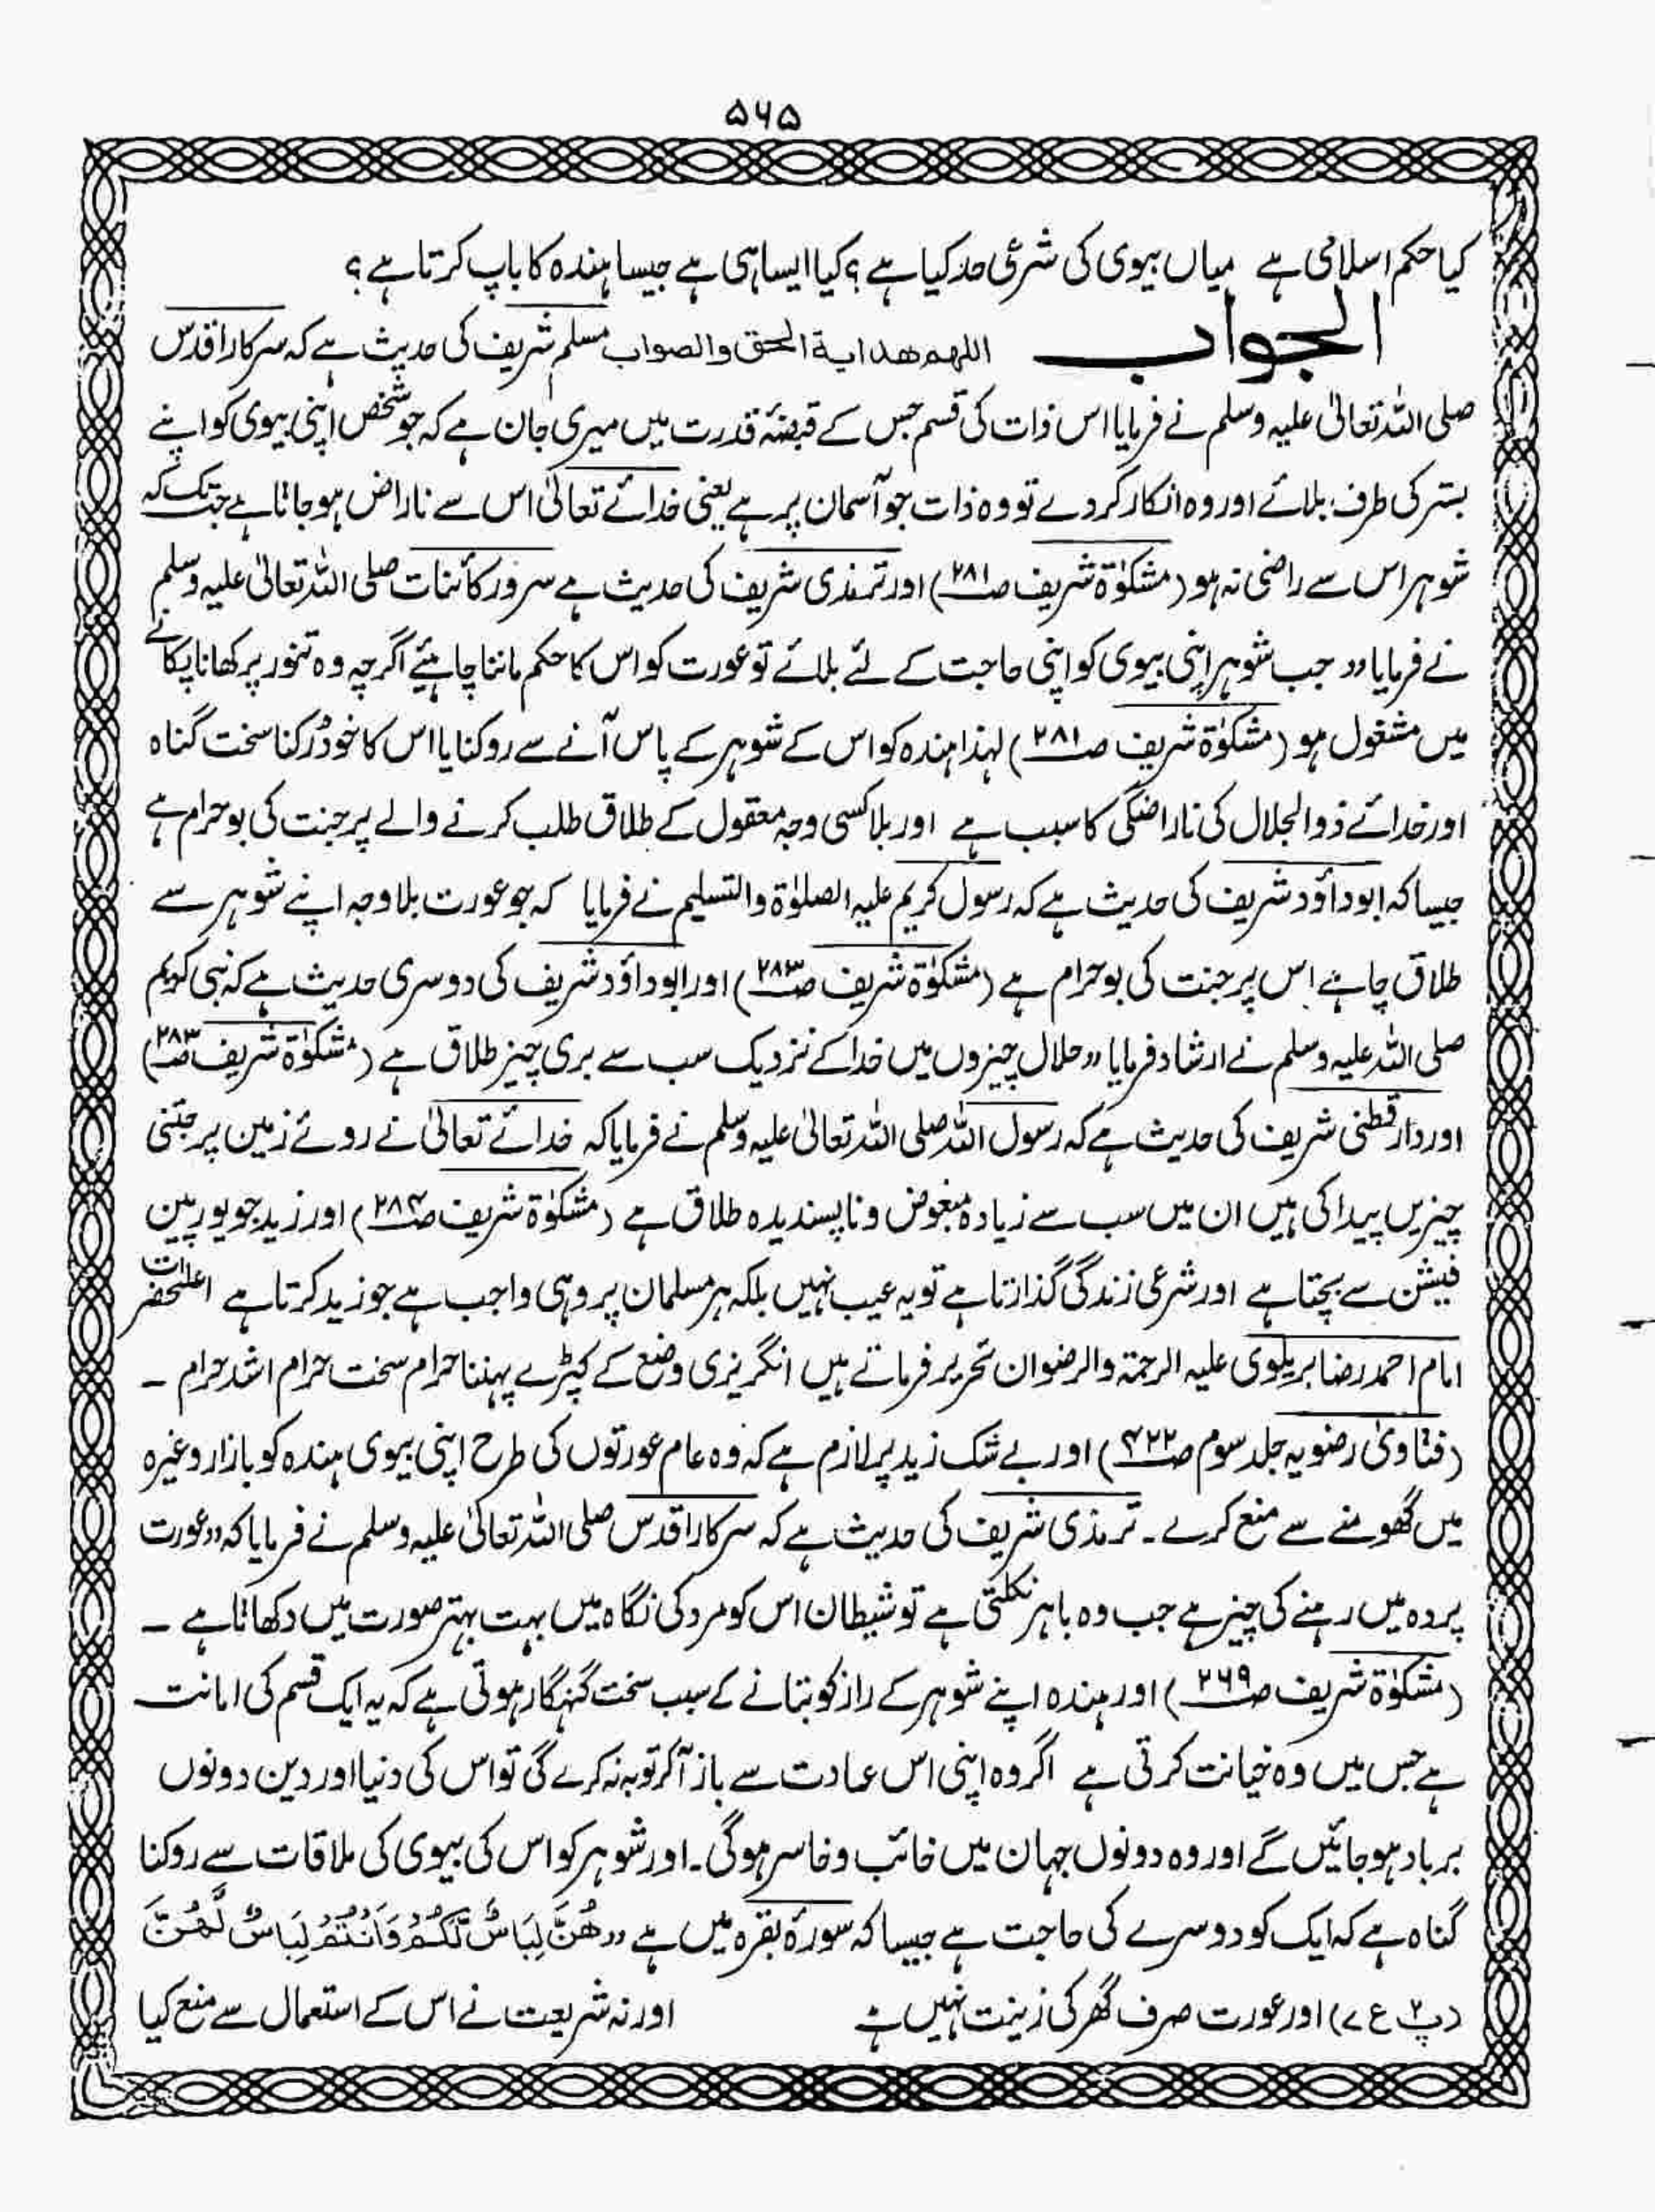 ۵۶۵
کیا حکم اسلامی ہے میاں بیوی کی شرعی حد کیا ہے ؟ کیا ایسا ہی ہے جیسا ہندہ کا باپ کرتا ہے ؟
الجواب اللهم هداية الحق والصواب مسلم شریف کی حدیث ہے کہ سرکار اقدس
صلی اللہ تعالیٰ علیہ وسلم نے فرمایا اس ذات کی قسم جس کے قبضۂ قدرت میں میری جان ہے کہ جو شخص اپنی بیوی کو اپنے
بستر کی طرف بلائے اور وہ انکار کر دے تو وہ ذات جو آسمان پر ہے یعنی خدائے تعالیٰ اس سے ناراض ہو جاتا ہے جب تک کہ
شوہر اس سے راضی نہ ہو (مشکوٰۃ شریف صـ ۲۸۱) اور ترمذی شریف کی حدیث ہے سرور کائنات صلی اللہ تعالیٰ علیہ وسلم
نے فرمایا ،، جب شوہر اپنی بیوی کو اپنی حاجت کے لئے بلائے تو عورت کو اس کا حکم ماننا چاہیئے اگرچہ وہ تنور پر کھانا پکانے
میں مشغول ہو (مشکوٰۃ شریف صـ ۲۸۱) لہذا ہندہ کو اس کے شوہر کے پاس آنے سے روکنا یا اس کا خود رکنا سخت گناہ
اور خدائے ذوالجلال کی ناراضگی کا سبب ہے اور بلا کسی وجہ معقول کے طلاق طلب کرنے والے پر جنت کی بو حرام ہے
جیسا کہ ابو داؤد شریف کی حدیث ہے کہ رسول کریم علیہ الصلوٰۃ والتسلیم نے فرمایا کہ جو عورت بلا وجہ اپنے شوہر سے
طلاق چاہے اس پر جنت کی بو حرام ہے (مشکوٰۃ شریف صـ ۲۸۳) اور ابو داؤد شریف کی دوسری حدیث ہے کہ نبی کریم
صلی اللہ علیہ وسلم نے ارشاد فرمایا ،، حلال چیزوں میں خدا کے نزدیک سب سے بری چیز طلاق ہے (مشکوٰۃ شریف صـ ۲۸۳)
اور دار قطنی شریف کی حدیث ہے کہ رسول اللہ صلی اللہ تعالیٰ علیہ وسلم نے فرمایا کہ خدائے تعالیٰ نے روئے زمین پر جتنی
چیزیں پیدا کی ہیں ان میں سب سے زیادہ مبغوض و ناپسندیدہ طلاق ہے (مشکوٰۃ شریف صـ ۲۸۴) اور زید جو یورپین
فیشن سے بچتا ہے اور شرعی زندگی گذارتا ہے تو یہ عیب نہیں بلکہ ہر مسلمان پر وہی واجب ہے جو زید کرتا ہے اعلیٰحضرت
امام احمد رضا بریلوی علیہ الرحمۃ والرضوان تحریر فرماتے ہیں انگریزی وضع کے کپڑے پہننا حرام سخت حرام اشد حرام ۔
(فتاویٰ رضویہ جلد سوم صـ ۴۲۲) اور بے شک زید پر لازم ہے کہ وہ عام عورتوں کی طرح اپنی بیوی ہندہ کو بازار وغیرہ
میں گھومنے سے منع کرے ۔ ترمذی شریف کی حدیث ہے کہ سرکار اقدس صلی اللہ تعالیٰ علیہ وسلم نے فرمایا کہ ،، عورت
پردہ میں رہنے کی چیز ہے جب وہ باہر نکلتی ہے تو شیطان اس کو مرد کی نگاہ میں بہت بہتر صورت میں دکھاتا ہے ۔
(مشکوٰۃ شریف صـ ۲۶۹) اور ہندہ اپنے شوہر کے راز کو بتانے کے سبب سخت گنہگار ہوتی ہے کہ یہ ایک قسم کی امانت
ہے جس میں وہ خیانت کرتی ہے اگر وہ اپنی اس عادت سے باز آ کر توبہ نہ کرے گی تو اس کی دنیا اور دین دونوں
برباد ہو جائیں گے اور وہ دونوں جہان میں خائب و خاسر ہو گی ۔ اور شوہر کو اس کی بیوی کی ملاقات سے روکنا
گناہ ہے کہ ایک کو دوسرے کی حاجت ہے جیسا کہ سورۂ بقرہ میں ہے ،، هُنَّ لِبَاسٌ لَّكُمْ وَاَنْتُمْ لِبَاسٌ لَّهُنَّ
(پ ۲ ع ۷) اور عورت صرف گھر کی زینت نہیں ہے اور نہ شریعت نے اس کے استعمال سے منع کیا